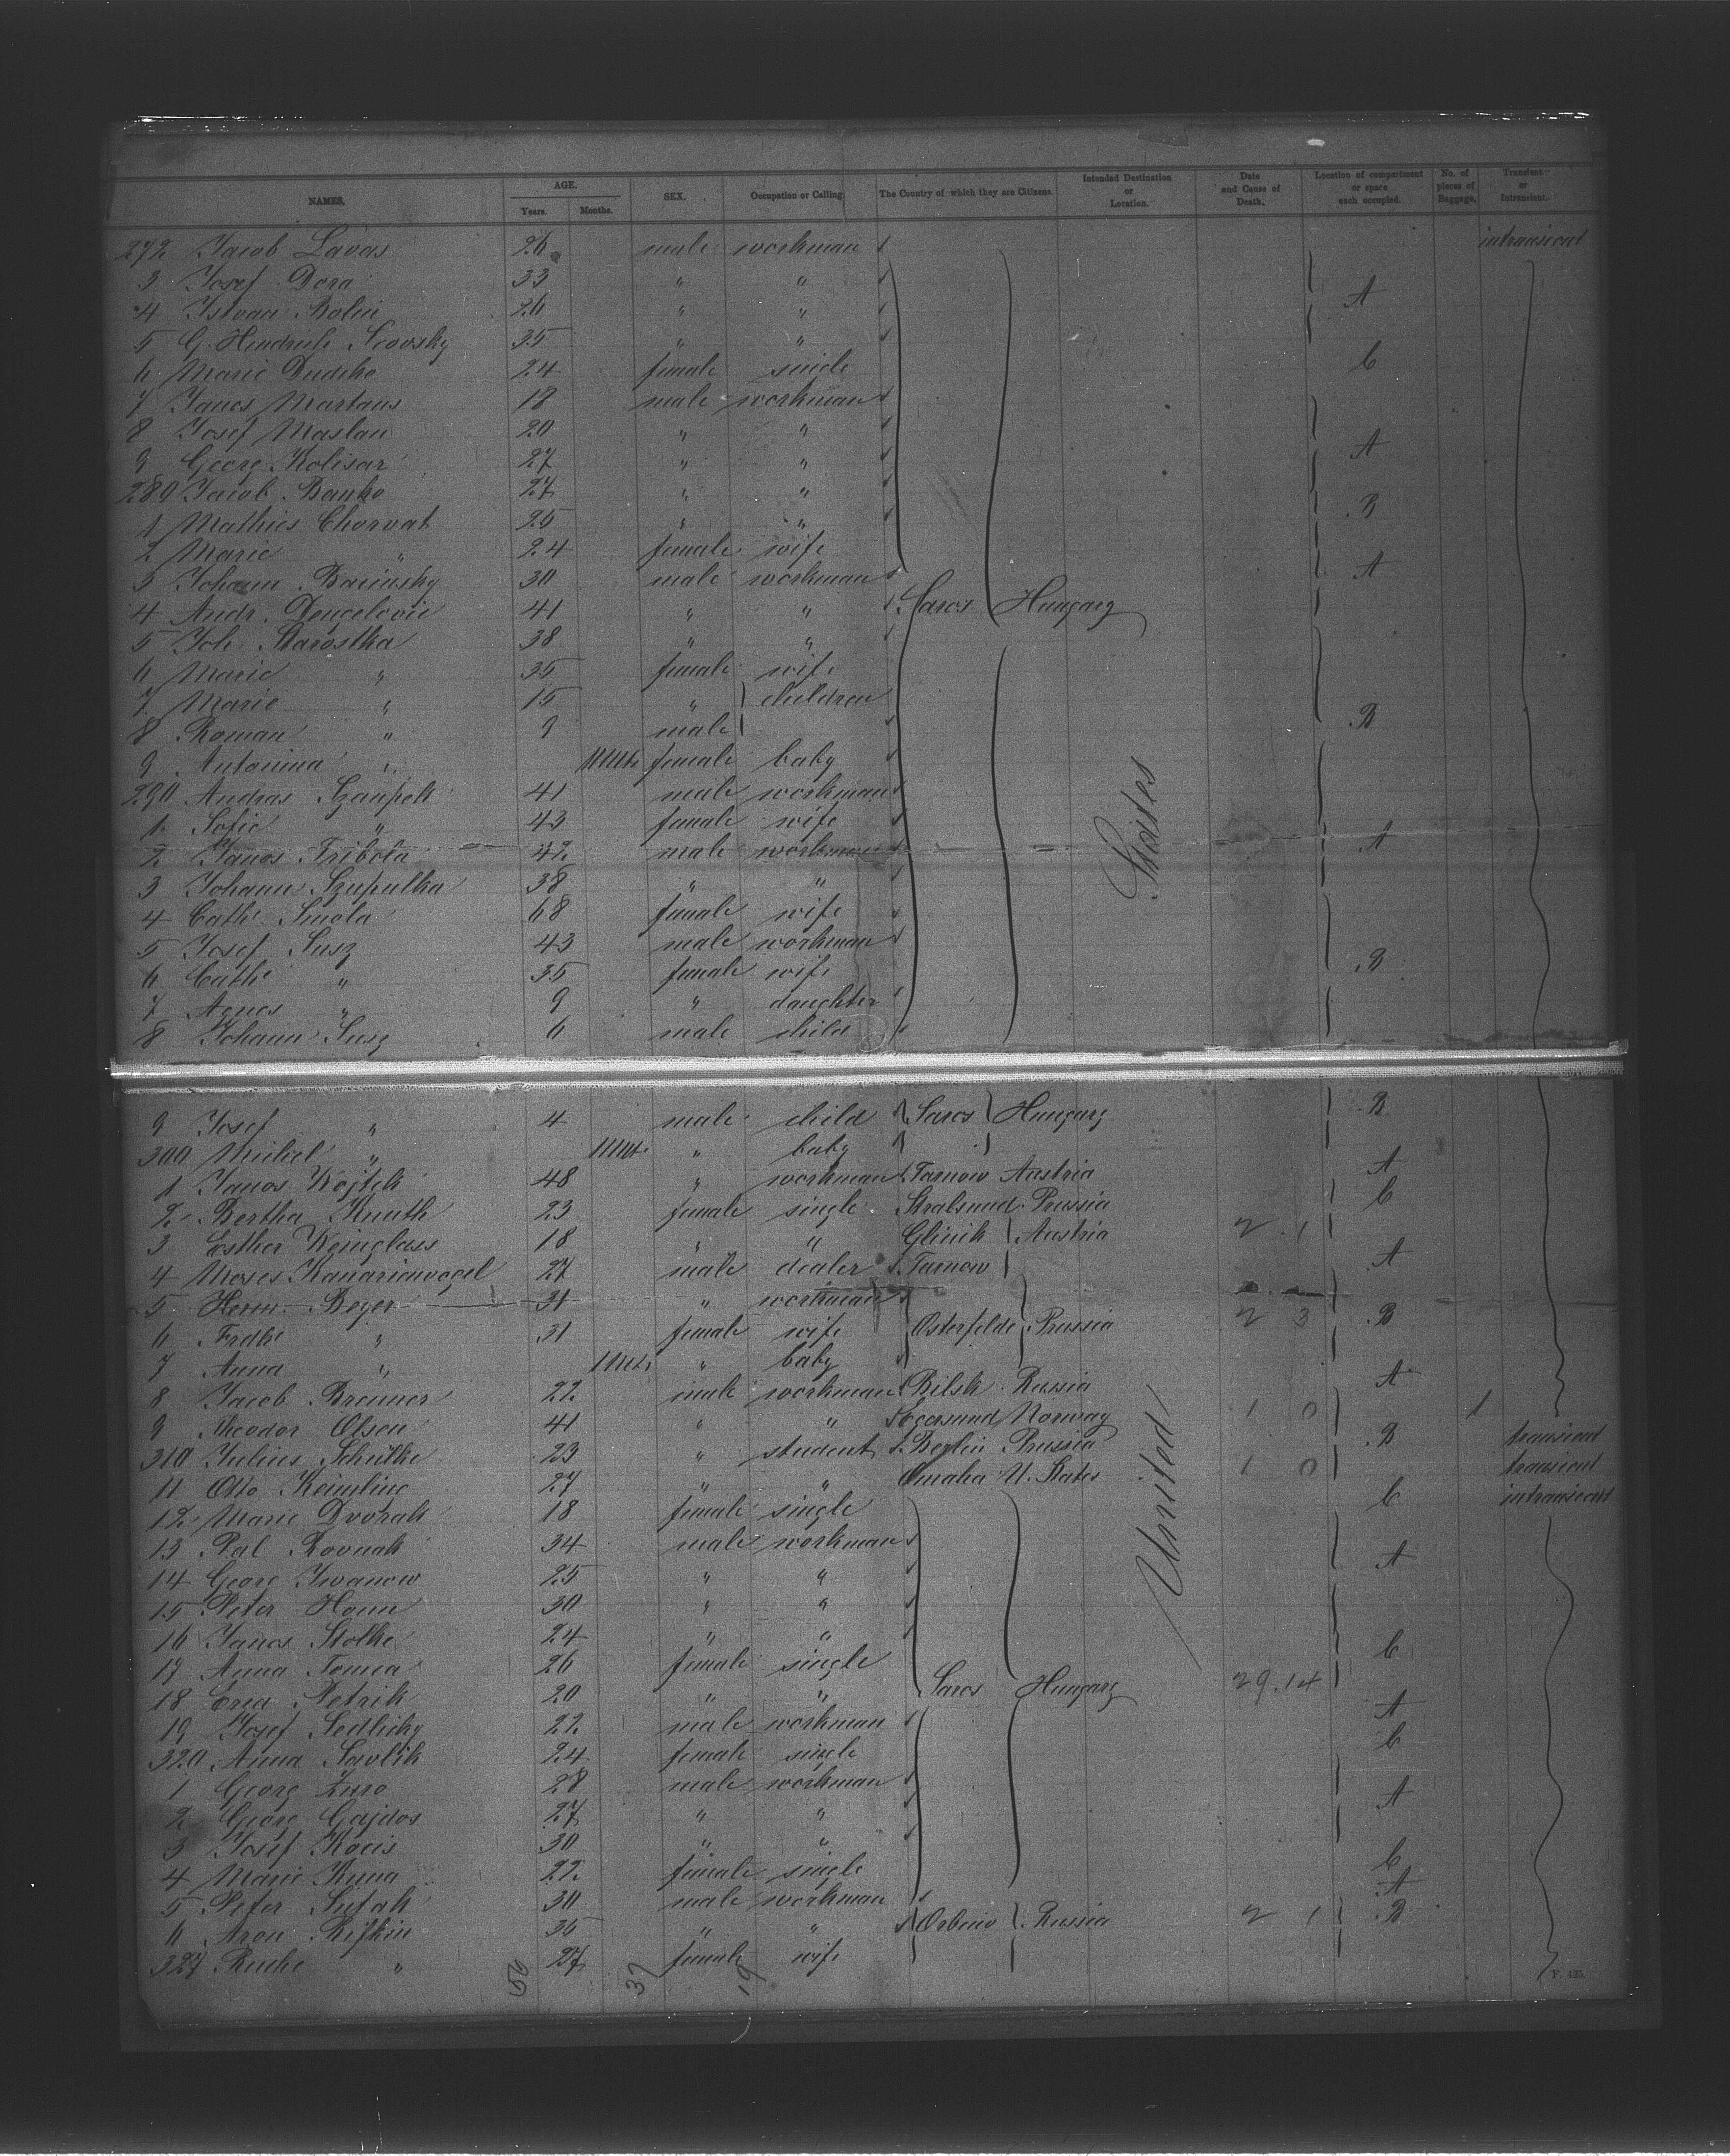 NAMES. AGE. Years. Months. SEX. Occupation or Calling The Country of which they are Citizens. Intended Destination or Location. Date and Cause of Death. Location of compartment or space each occupied. No. of pieces of Baggage. Transient or Intransient.
272 Jacob Lavas 26 male workman intransient
3 Josef Dora 33 " "
4 Istvan Bolin 26 " " A
5 G. Hendrich 35 " "
6 Marie Dudcho 24 female single C
7 Janos Martaus 18 male workman
8 Josef Maslan 20 " "
9 Georg Kolisar 27 " " A
280 Jacob Banko 27 " "
1 Mathies Chorvat 25 " " B
2 Marie " 24 female wife
3 Johann Barinsky 30 male workman A
4 Andr. 41 " " Saros Hungary
5 Joh. Starostka 38 " "
6 Marie " 35 female wife
7 Marie " 15 " children
8 Roman " 9 male B
9 Antonina " 11 Mth. female baby
290 Andras 41 male workman
1 Sofie " 43 female wife
2 Janos Tribola 42 male workman A
3 Johann Szupulka 38 " "
4 Cath. Smola 68 female wife
5 Josef Susz 43 male workman
6 Cath. " 35 female wife B
7 Agnes " 9 " daughter
8 Johann Susz 6 male child
States
9 Josef " 4 male child Saros Hungary B
300 Michal " 11 Mt. " baby
1 Janos Wojtek 48 " workman Tarnow Austria A
2 Bertha Knuth 23 female single Stralsund Prussia C
3 Esther Weinglass 18 " " Glinik Austria 2 1
4 Moses Kanarienvogel 27 male dealer Tarnow A
5 Herm. Beyer 31 " workman
6 Frdke " 31 female wife Osterfelde Prussia 2 3 B
7 Anna " " baby
8 Jacob Brenner 22 male workman Bilsk Russia A
9 Theodor Olsen 41 " " Norway 1 0 1
310 Julius Schülke 23 " student Berlin Prussia B transient
11 Otto Keimling 27 " " Omaha U. States 1 0 transient
12 Marie Dvorak 18 female single C intransient
13 Pal Rovnak 34 male workman
14 Georg Iwanow 25 " " A
15 Peter Honn 30 " "
United
16 Janos Stolke 24 " "
17 Anna Tomca 26 female single C
18 Erza Petrik 20 " " Saros Hungary 29.14
19 Josef Sedlicky 22 male workman A
320 Anna Savlik 24 female single C
1 Georg Zuro 28 male workman
2 Georg Gajdos 27 " " A
3 Josef Kocis 30 " "
4 Marie Kuna 22 female single C
5 Peter Sutak 30 male workman A
6 Aron Rifkin 35 " " Russia 2 1 B
327 Ruche " 27 female wife
50 37 19